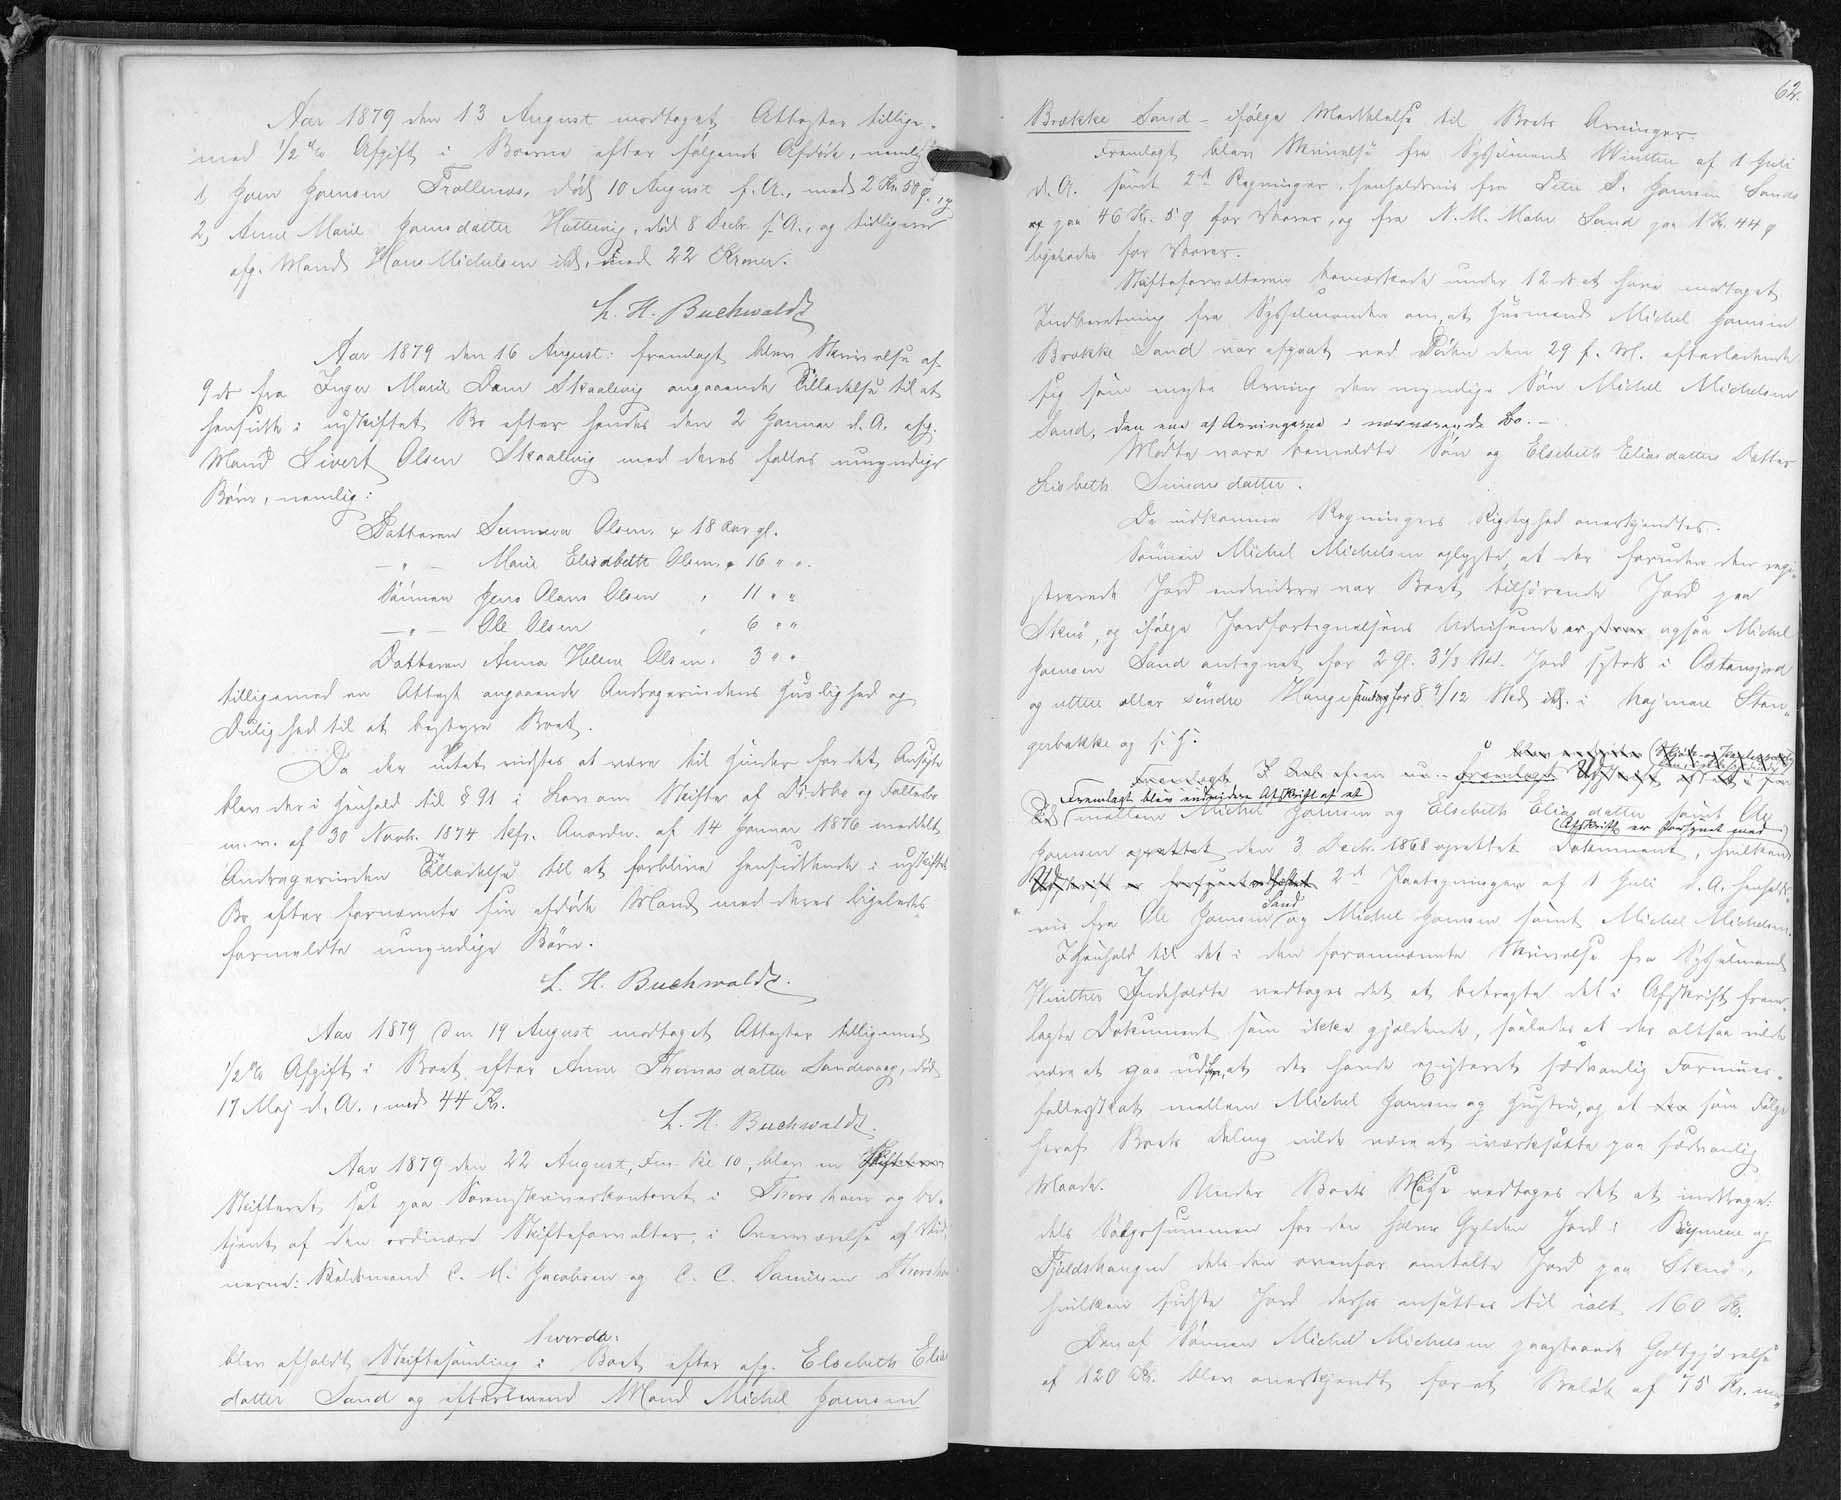 Aar 1879 den 13 August modtaget Attester tillige-
med 1/2 % Afgift i Boerne efter følgende Afdøde, nemlig
1, Joen Joensen Trøllenæs, død 10 August f. A., med 2 Kr. 50 Ø. og
2, Anne Marie Joensdatter Hattervig, død 8 Decbr. f. A., og tidligere
afg. Mand Hans Michelsen ibd., med 22 Kroner.
L. H. Buchwaldt
Aar 1879 den 16 August: fremlagt blev Skrivelse af
9 ds fra Inger Marie Dam Skaalevig angaaende Tilladelse til at
hensidde i uskiftet Bo efter hendes den 2 Januar d. A. afg.
Mand Sivert Olsen Skaalevig med deres fælles umyndige
Børn, nemlig:
Datteren Sunneva Olsen, 18 Aar gl.
— " — Marie Elisabeth Olsen, 16 " "
Sönnen Jens Olaus Olsen , 11 " "
— " — Ole Olsen , 6 " "
Datteren Anna Helene Olsen, 3 " "
tilligemed en Attest angaaende Andragerindens Huslighed og
Dulighed til at bestyre Boet.
Da der intet vidstes at være til Hinder for det Ansøgte
blev der i Henhold til § 91 i Lov om Skifte af Dødsbo og Fællesbo
m. v. af 30 Novb. 1874 kfr. Anordn. af 14 Januar 1876 meddelt
Andragerinden Tilladelse til at forblive hensiddende i uskiftet
Bo efter fornævnte sin afdøde Mand med deres ligeledes
formeldte umyndige Børn.
L. H. Buchwaldt.
Aar 1879 den 19 August modtaget Attester tilligemed
1/2 % Afgift i Boet efter Anne Thomasdatter Sandevaag, død
17 Maj d. A., med 44 Kr.
L. H. Buchwaldt.
Aar 1879 den 22 August, Fm. Kl 10, blev en
Skifteret sat paa Sorenskriverkontoret i Thorshavn og be-
tjent af den ordinære Skifteforvalter, i Overværelse af Vid-
nerne: C. M. Jacobsen og C. C. Danielsen Thorshavn
hvorda:
blev afholdt Skiftesamling i Boet efter afg. Elsebeth Elias
datter Sand og efterlevend Mand Michel Joensen
62.
Brække Sand - ifølge Meddelelse til Boets Arvinger.
Fremlagt blev Skrivelse fra Sysselmand Winther af 1 Juli
d. A. samt 2de Regninger, henholdsvis fra Peter S. Joensen Sand
paa 46 Kr. 5 Ø for Varer, og fra N. M. Mohr Sand paa 1 Kr. 44 Ø
ligeledes for Varer.
Skifteforvalteren bemærkede under 12 ds at have modtaget
Indberetning fra Sysselmanden om, at Husmand Michel Joensen
Brække Sand var afgaaet ved Døden den 29 f. M. efterladende
sig som neste Arving den myndige Søn Michel Michelsen
Sand, den ene af Arvingerne i nærværende Bo. -
Mødte vare bemeldte Søn og Elsebeth Eliasdatters Datter
Lisbeth Simonsdatter.
De indkomne Regningers Rigtighed anerkjendtes.
Sönnen Michel Michelsen oplyste, at der foruden den regi-
strerede Jord endvidere var Boet tilhørende Jord paa
Skuø, og ifølge Jordfortegnelsens Udvisende er ogsaa Michel
Joensen Sand antegnet for 2 Gl. 3 1/3 Sk. Jord i
og ytter eller søndre Hauge samt for 8 9/12 Sk ibd. i
gerbakke og
Fremlagt blev endvidere Afskrift af et
mellem Michel Joensen og Elsebeth Eliasdatter samt Ole
(Afskrift er forsynet med
Joensen den 3 Decbr. 1868 oprettet Dokument, hvilken
2de Paategninger af 1 Juli d. A. henholds-
vis fra Ole Joensen Sand og Michel Joensen samt Michel Michelsen.
I Henhold til det i den foranævnte Skrivelse fra Sysselmand
Winther Indeholdte vedtoges det at betragte det i Afskrift frem-
lagte Dokument som ikke gjældende, saaledes at der altsaa vilde
være at gaa ud fra, at der havde existeret sædvanlig Formues-
fællesskab mellem Michel Joensen og Hustru, og at som Følge
heraf Boets Deling vilde være at iværksætte paa sædvanlig
Maade. Under Boets Masse vedtoges det at inddrage:
dels Salgssummen for den halve Gylden Jord i Bøgmene og
Fjeldshaugen dels den ovenfor omtalte Jord paa Skuø,
hvilken sidste Jord derhos ansattes til ialt 160 Kr.
Den af Sönnen Michel Michelsen paastaaede Godtgjørelse
af 120 Kr. blev anerkjendt for et Beløb af 75 Kr.